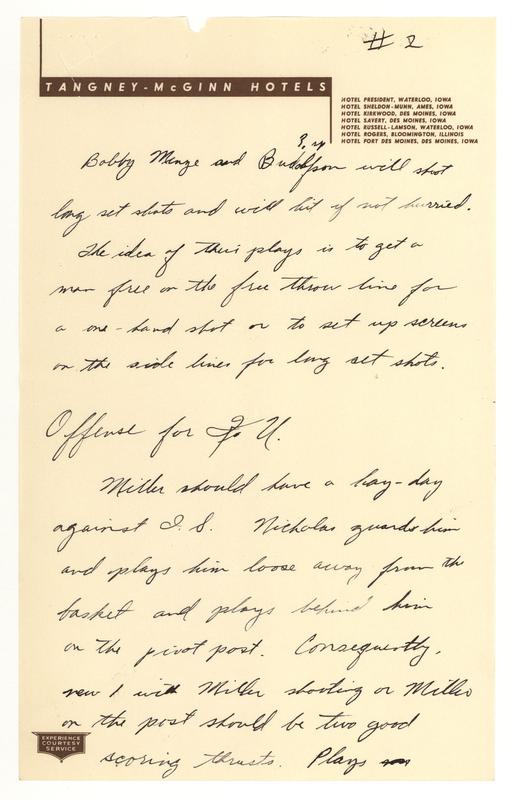 # 2
TANGNEY-McGINN HOTELS
HOTEL PRESIDENT, WATERLOO, IOWA
HOTEL SHELDON-MUNN, AMES, IOWA
HOTEL KIRKWOOD, DES MOINES, IOWA
HOTEL SAVERY, DES MOINES, IOWA
HOTEL RUSSELL-LAMSON, WATERLOO, IOWA
HOTEL ROGERS, BLOOMINGTON, ILLINOIS
HOTEL FORT DES MOINES, DES MOINES, IOWA
Bobby and will shot
long set shots and will hit if not hurried.
The idea of their plays is to get a
man free on the free throw line for
a one-hand shot or to set up screens
on the side lines for long set shots.
Offense for U.
Miller should have a hay-day
against I.S. Nicholas guards him
and plays him loose away from the
basket and plays behind him
on the pivot post. Consequently,
new 1 with Miller shooting or Miller
on the post should be two good
scoring thrusts. Plays
EXPERIENCE
COURTESY
SERVICE